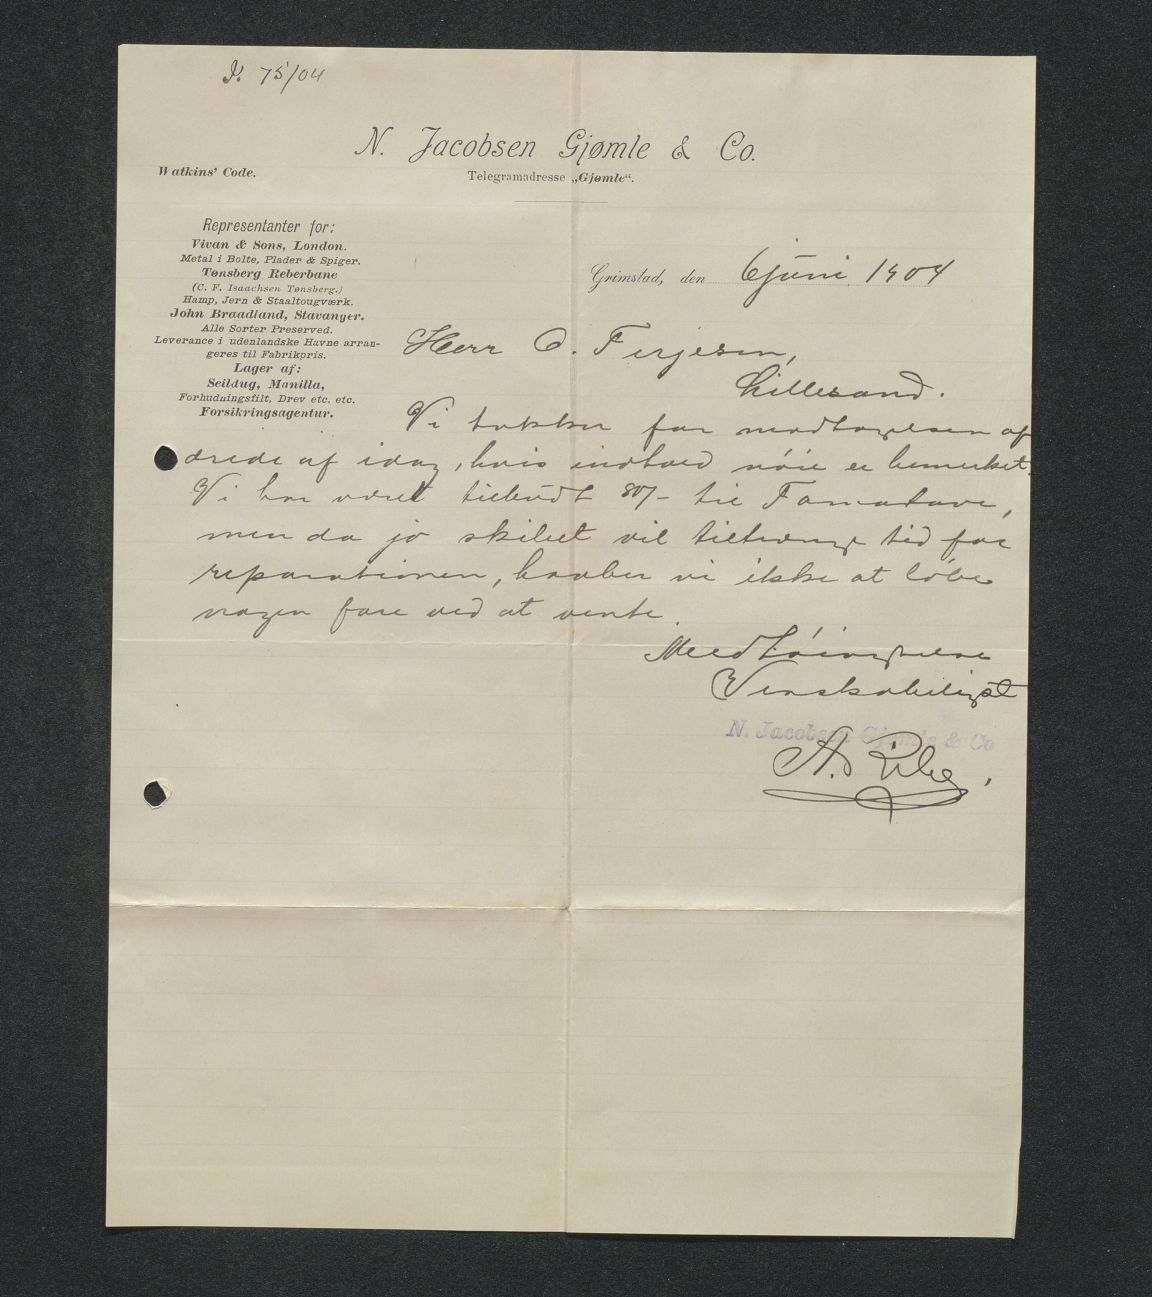 J. 75/04
N. Jacobsen Gjømle & Co.
Telegramadresse „Gjømle“.
Watkins' Code.
Representanter for:
Vivan & Sons, London.
Metal i Bolte, Plader & Spiger.
Tønsberg Reberbane
(C. F. Isaachsen Tønsberg.)
Hamp, Jern & Staaltougværk.
John Braadland, Stavanger.
Alle Sorter Preserved.
Leverance i udenlandske Havne arran-
geres til Fabrikpris.
Lager af:
Seildug, Manilla,
Forhudningsfilt, Drev etc. etc.
Forsikringsagentur.
Grimstad, den 6 juni 1904
Herr O. Terjesen,
Lillesand.
Vi takker for modtagelsen af
ærede af idag, hvis indhold nöie er bemerket.
Vi har været tilbudt 80/- til Tamatave,
men da jo skibet vil tiltrænge tid for
reparationen, haaber vi ikke at löbe
nogen fare ved at vente.
Med höiagtelse
Venskabeligst
N. Jacobsen Gjømle & Co